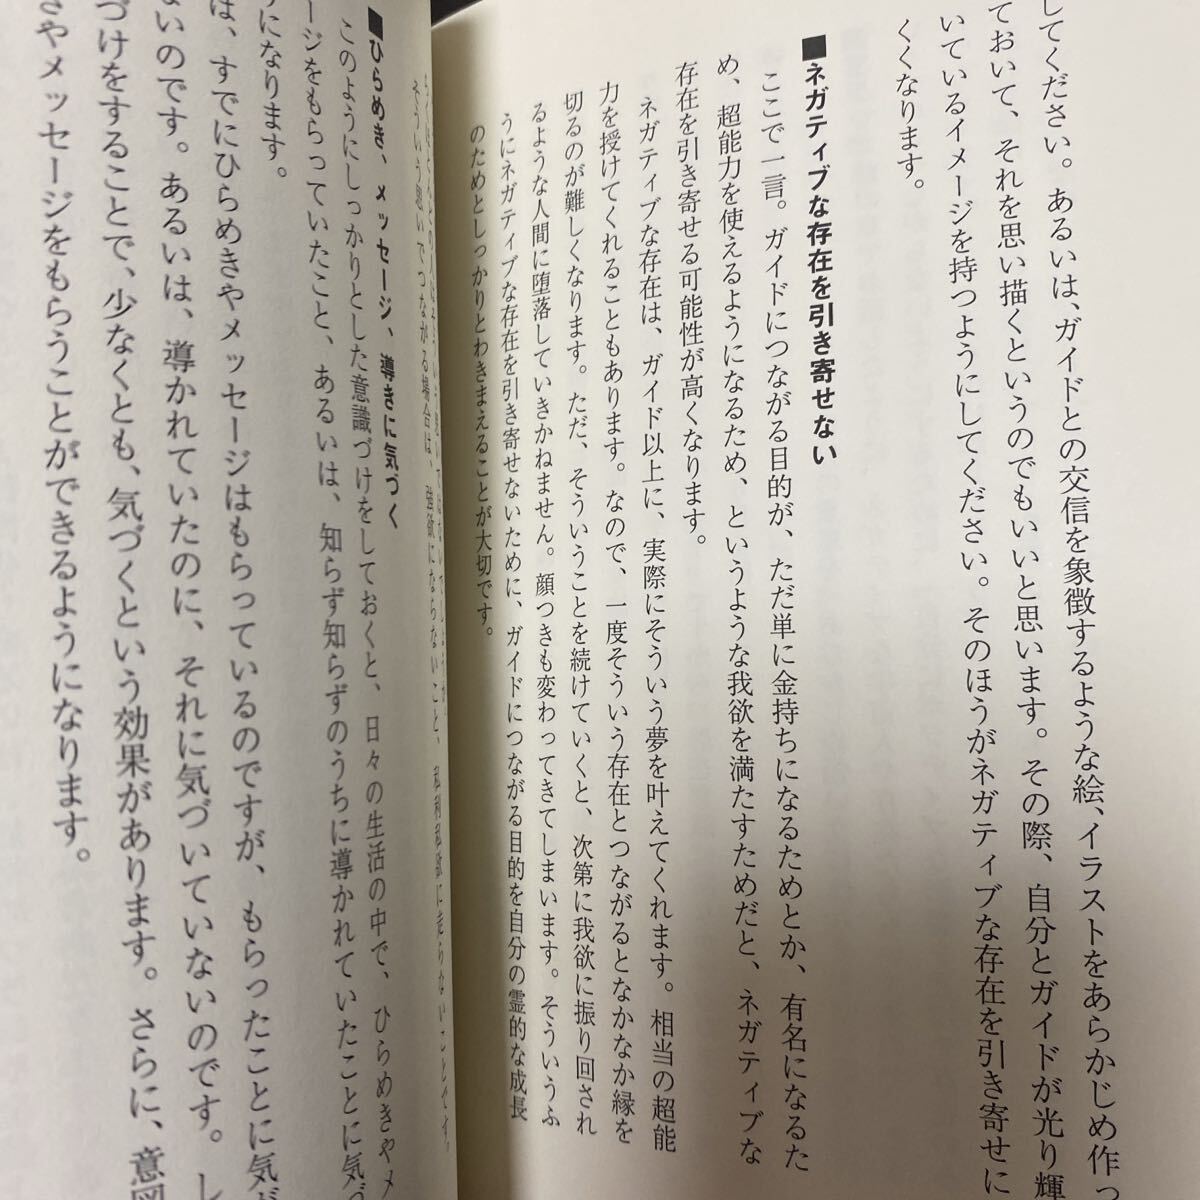 してください。あるいは、ガイドとの交信を象徴するような絵、イラストをあらかじめ作っ
ておいて、それを思い描くというのでもいいと思います。その際、自分とガイドが光り輝
いているイメージを持つようにしてください。そのほうがネガティブな存在を引き寄せに
くくなります。
■ネガティブな存在を引き寄せない
ここで一言。ガイドにつながる目的が、ただ単に金持ちになるためとか、有名になるた
め、超能力を使えるようになるため、というような我欲を満たすためだと、ネガティブな
存在を引き寄せる可能性が高くなります。
ネガティブな存在は、ガイド以上に、実際にそういう夢を叶えてくれます。相当の超能
力を授けてくれることもあります。なので、一度そういう存在とつながるとなかなか縁を
切るのが難しくなります。ただ、そういうことを続けていくと、次第に我欲に振り回され
るような人間に堕落していきかねません。顔つきも変わってきてしまいます。そういうふ
うにネガティブな存在を引き寄せないために、ガイドにつながる目的を自分の霊的な成長
のためとしっかりとわきまえることが大切です。
そういう思いでつながる場合は、強欲にならないこと、私利私欲に走らないことです。
■ひらめき、メッセージ、導きに気づく
このようにしっかりとした意識づけをしておくと、日々の生活の中で、ひらめきやメ
ージをもらっていたこと、あるいは、知らず知らずのうちに導かれていたことに気づ
になります。
は、すでにひらめきやメッセージはもらっているのですが、もらったことに気が
ないのです。あるいは、導かれていたのに、それに気づいていないのです。し
づけをすることで、少なくとも、気づくという効果があります。さらに、意図
きやメッセージをもらうことができるようになります。